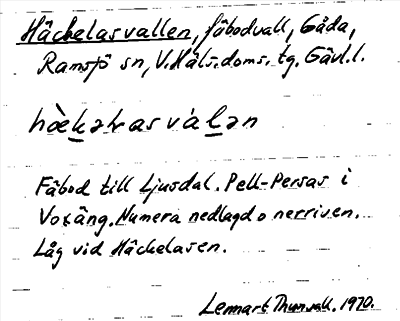 Häckelasvallen, fäbodvall, Gåda,
Ramsjö sn, V.Häls.doms. tg. Gävl.l.
Fäbod till Ljusdal. Pell-Persas i
Voxäng. Numera nedlagd o nerriven.
Låg vid Häckelasen.
Lennart Thunvall. 1970.